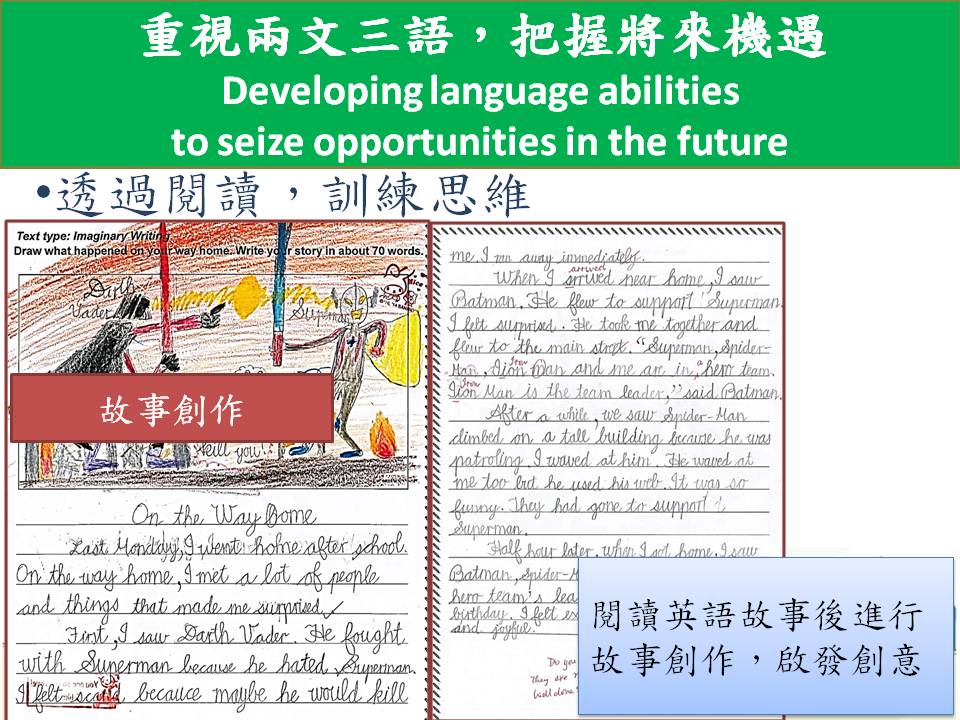 重視兩文三語，把握將來機遇
Developing language abilities
to seize opportunities in the future
•透過閱讀，訓練思維
Text type: Imaginary Writing
Draw what happened on your way home. Write your story in about 70 words.
Darth
Vader
Superman
nice
故事創作
kill you!
On the Way Home
Last Monday, I went home after school.
On the way home, I met a lot of people
and things that made me surprised.
First, I saw Darth Vader. He fought
with Superman because he hated Superman.
I felt scared because maybe he would kill
me. I run away immediately.
arrived
When I arrived near home, I saw
Batman. He flew to support Superman.
I felt surprised. He took me together and
flew to the main street. "Superman, Spider-
Man, Iron Man and me are in a hero team.
Iron Man is the team leader," said Batman.
After a while, we saw Spider-Man
climbed on a tall building because he was
patroling. I waved at him. He waved at
me too but he used his web. It was so
funny. They had gone to support
Superman.
Half hour later, when I got home, I saw
Batman, Spider-M
hero team's lea
birthday. I felt ex
and joyful.
Do you
They are
Well done
閱讀英語故事後進行
故事創作，啟發創意